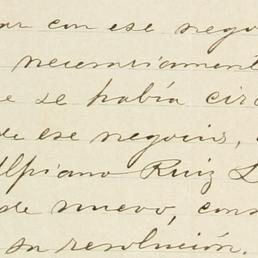 ar con ese nego
necesariament
e se había cir
de ese negocio,
Ulpiano Ruiz L
de nuevo, cons
su resolución.